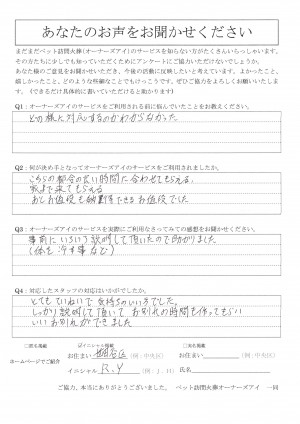 あなたのお声をお聞かせください
まだまだペット訪問火葬(オーナーズアイ)のサービスを知らない方がたくさんいらっしゃいます。
その方たちに少しでも知っていただくためにアンケートにご協力いただけないでしょうか。
あなた様のご意見をお聞かせいただき、今後の活動に反映したいと考えています。よかったこと、
嬉しかったこと、どのような些細なことでもけっこうです。ぜひご協力をよろしくお願いいたします。(できるだけ具体的に書いていただけると助かります)
Q1：オーナーズアイのサービスをご利用される前に悩んでいたことをお教えください。
どの様に対応するのかわからなかった
Q2：何が決め手となってオーナーズアイのサービスをご利用されましたか。
こちらの都合の良い時間に合わせてもらえる。
家まで来てもらえる
あと お値段も納得できる お値段でした
Q3：オーナーズアイのサービスを実際にご利用なさってみての感想をお聞かせください。
事前にいろいろ説明して頂いたので助かりました
(体を冷す事など)
Q4：対応したスタッフの対応はいかがでしたか。
とてもていねいで 気持ちのいい方でした。
しっかり説明して頂いて お別れの時間も作ってもらい
いいお別れができました
ホームページでご紹介
□匿名掲載
☑イニシャル掲載
お住まい 区(例:中央区)
イニシャル R.Y (例:J．H)
□実名掲載
お住まい (例:中央区)
氏名
ご協力、本当にありがとうございました。 ペット訪問火葬オーナーズアイ 一同